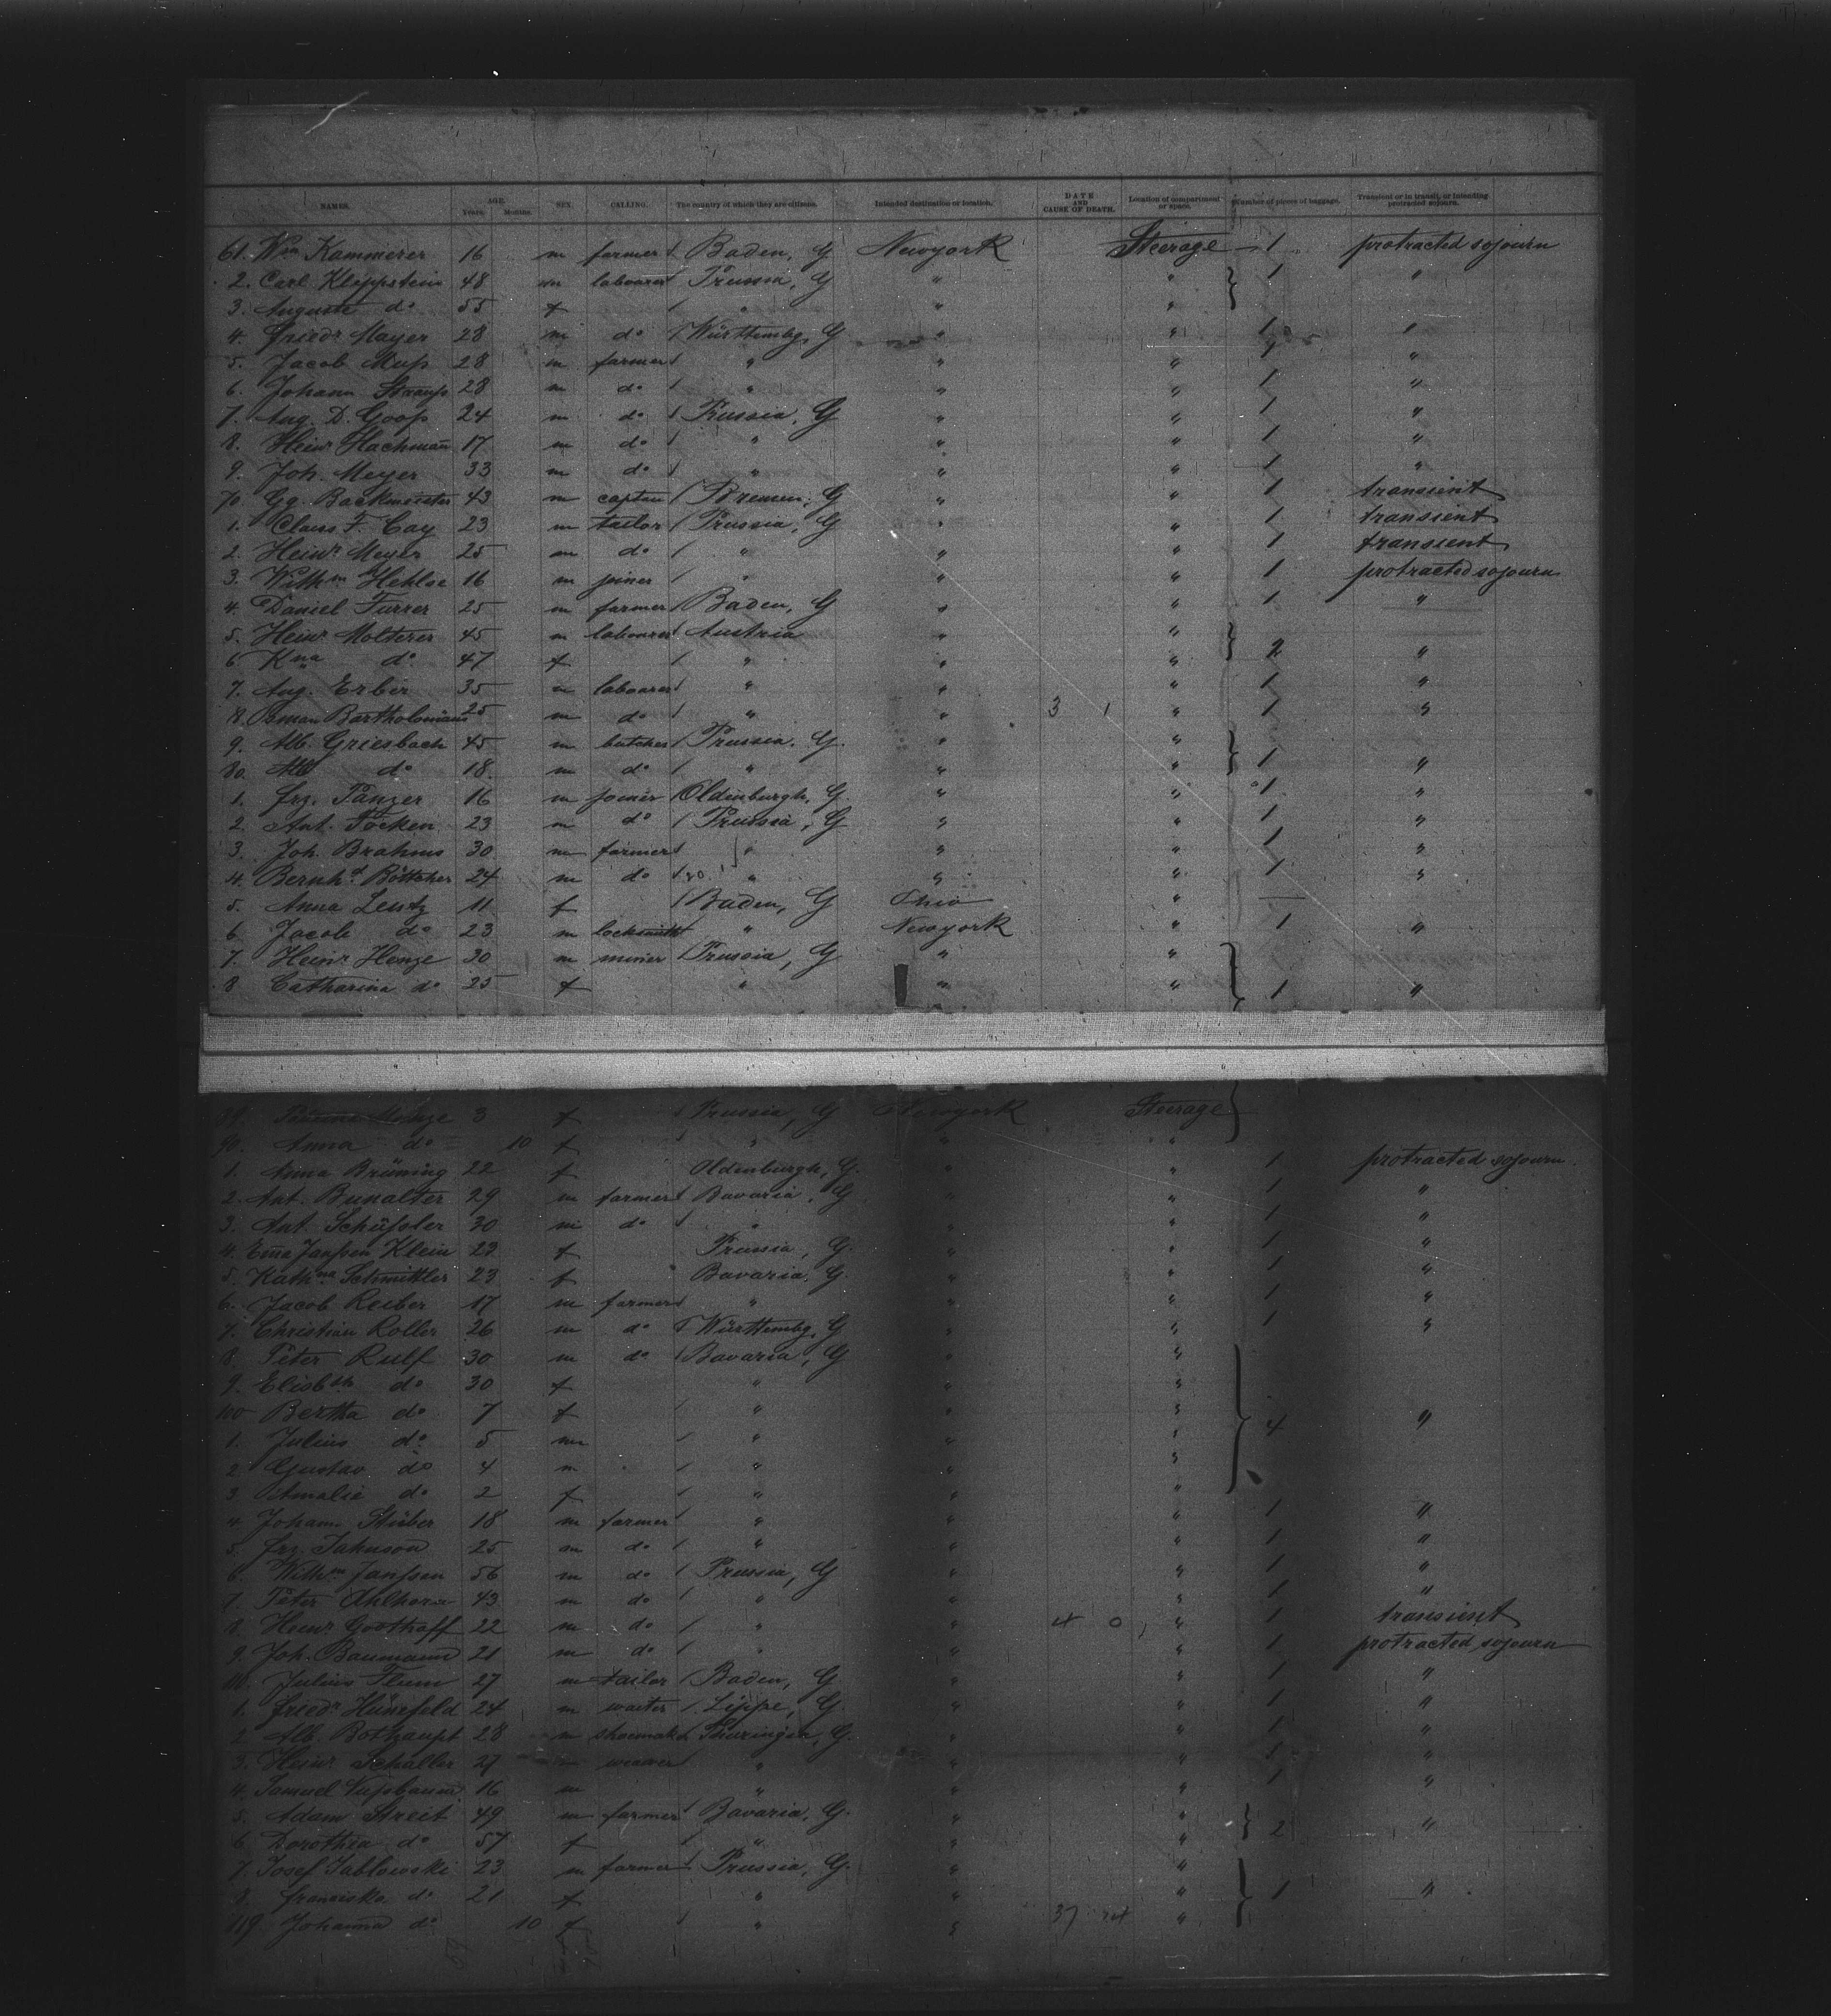 NAMES. AGE. Years. Months. SEX. CALLING. The country of which they are citizens. Intended destination or location. DATE AND CAUSE OF DEATH. Location of compartment or space. Number of pieces of baggage. Transient or in transit, or intending protracted sojourn.
61. Wm Kammerer 16 m farmer Baden, G Newyork Steerage 1 protracted sojourn
2. Carl Kleppstein 48 m labourer Prussia, G " " 1 "
3. Auguste do 55 f " " "
4. Friedr Mayer 28 m do Württembg, G " " 1 "
5. Jacob Muß 28 m farmer " " " 1 "
6. Johann Strauß 28 m do " " " 1 "
7. Aug. D. Gooß 24 m do Prussia, G " " 1 "
8. Heinr Hachmañ 17 m do " " " 1 "
9. Joh. Meyer 33 m do " " " 1 "
70. Gg. Backmeister 43 m captain Bremen, G " " 1 transient
1. Claus F. Cay 23 m tailor Prussia, G " " 1 transient
2. Heinr Meyer 25 m do " " " 1 transient
3. Wilhm Hehlse 16 m joiner " " " 1 protracted sojourn
4. Daniel Furrer 25 m farmer Baden, G " " 1 "
5. Heinr Molterer 45 m labourer Austria " "
6 Kna do 47 f " " " 2 "
7. Aug. Erber 35 m labourer " " " 1 "
8. Bartholomäus 25 m do " " 3 1 " 1 "
9. Alb. Griesbach 45 m butcher Prussia, G. " "
80. Alb do 18. m do " " " 1 "
1. Frz. Pänzer 16 m joiner Oldenburgh, G. " " 1 "
2. Ant. Focken 23 m do Prussia, G " " 1 "
3. Joh. Brahms 30 m farmer " " " 1 "
4. Bernhd Böttcher 24 m do " " " 1 "
5. Anna Lentz 11 f Baden, G Ohio " —
6. Jacob do 23 m locksmith " Newyork " 1 "
7. Heinr Henze 30 m miner Prussia, G " "
8 Catharina do 25 f " " " 1 "
89. Henze 3 f Prussia, G Newyork Steerage
90. Anna do 10 f " " "
1. Anna Brüning 22 f Oldenburgh, G. " " 1 protracted sojourn
2. Ant. Bunalter 29 m farmer Bavaria, G " " 1 "
3. Ant. Schüßler 30 m do " " " 1 "
4. Em̄a Janßen Klein 23 f Prussia, G. " " 1 "
5. Kathna Schmittler 23 f Bavaria, G. " " 1 "
6. Jacob Reiber 17 m farmer " " " 1 "
7. Christian Roller 26 m do Württembg, G " " 1 "
8. Peter Rulf 30 m do Bavaria, G " "
9. Elisbth do 30 f " " "
100 Bertha do 7 f " " " 4 "
1. Julius do 5 m " " "
2 Gustav do 4 m " " "
3 Amalie do 2 f " " "
4 Johann Stüber 18 m farmer " " " 1 "
5. Frz. Jahnson 25 m do " " " 1 "
6. Wilhm Janßen 56 m do Prussia, G " " 1 "
7. Peter Ahlhorn 43 m do " " " 1 "
8. Heinr Goothoff 22 m do " " 4 0 " 1 transient
9. Joh. Baumann 21 m do " " " 1 protracted sojourn
110. Julius Flum 27 m tailor Baden, G. " " 1 "
1. Friedr Hünefeld 24 m waiter Lippe, G. " " 1 "
2 Alb. Bothaupt 28 m shoemaker Thuringia, G. " " 1 "
3. Heinr Schaller 27 m weaver " " " 1 "
4. Samuel Nußbaum 16 m " " " 1 "
5. Adam Streit 49 m farmer Bavaria, G. " "
6. Dorothea do 57 f " " " 2 "
7. Josef Jablowski 23 m farmer Prussia, G. " "
8. Franziska do 21 f " " " 1 "
119 Johanna do 10 f " " 37 "